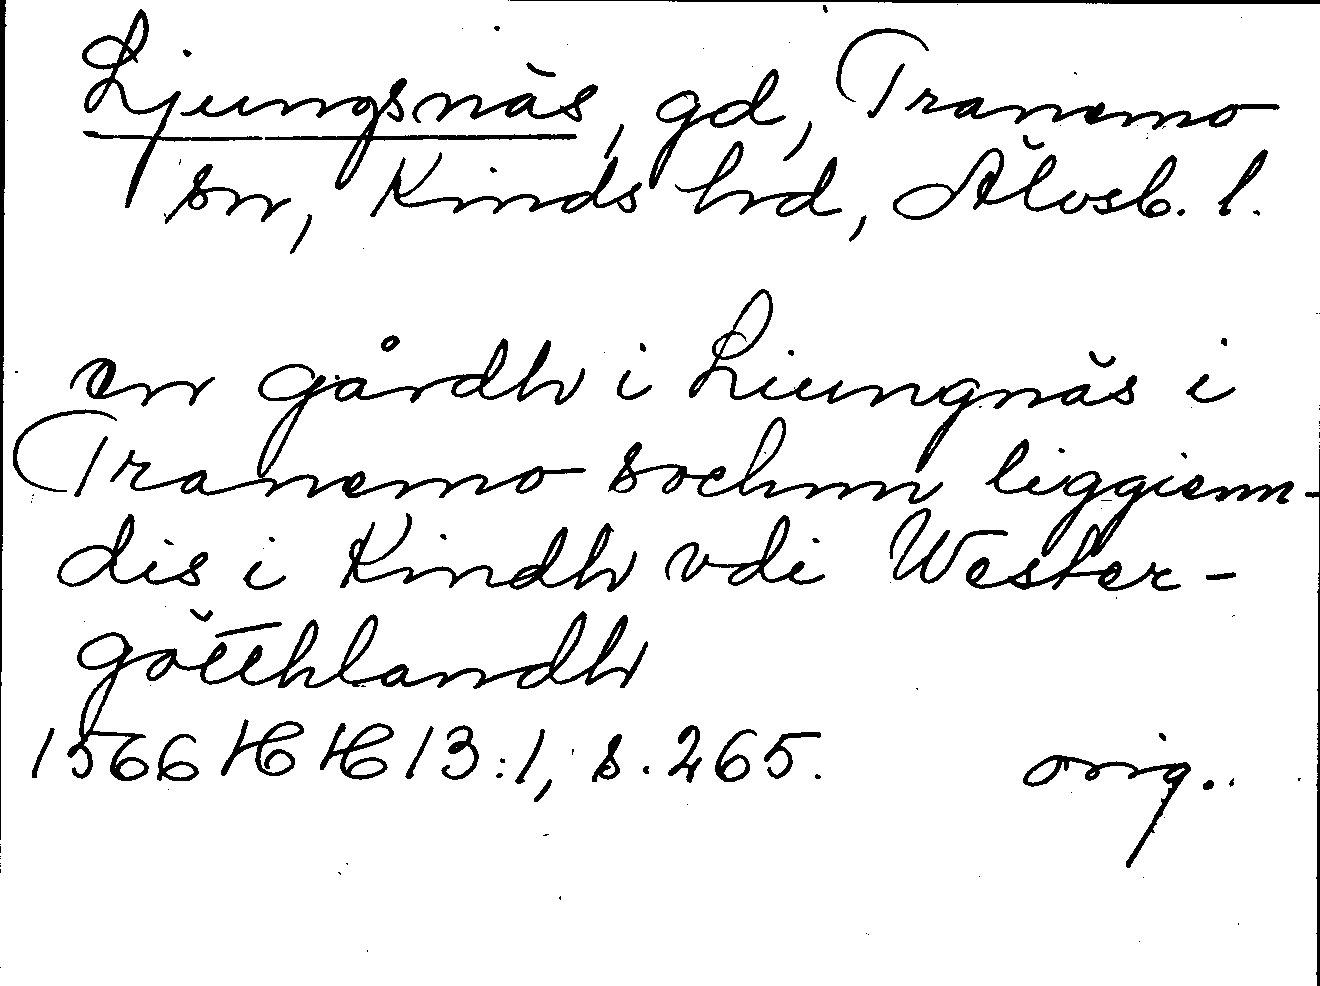 Ljungsnäs, gd, Tranemo
sn, Kinds hd, Älvsb. l.
en gårdh i Liungnäs i
Tranemo sochnn liggienn-
dis i Kindh vdi Wester-
götthlandh
1566 HH 13:1, s. 265. orig.